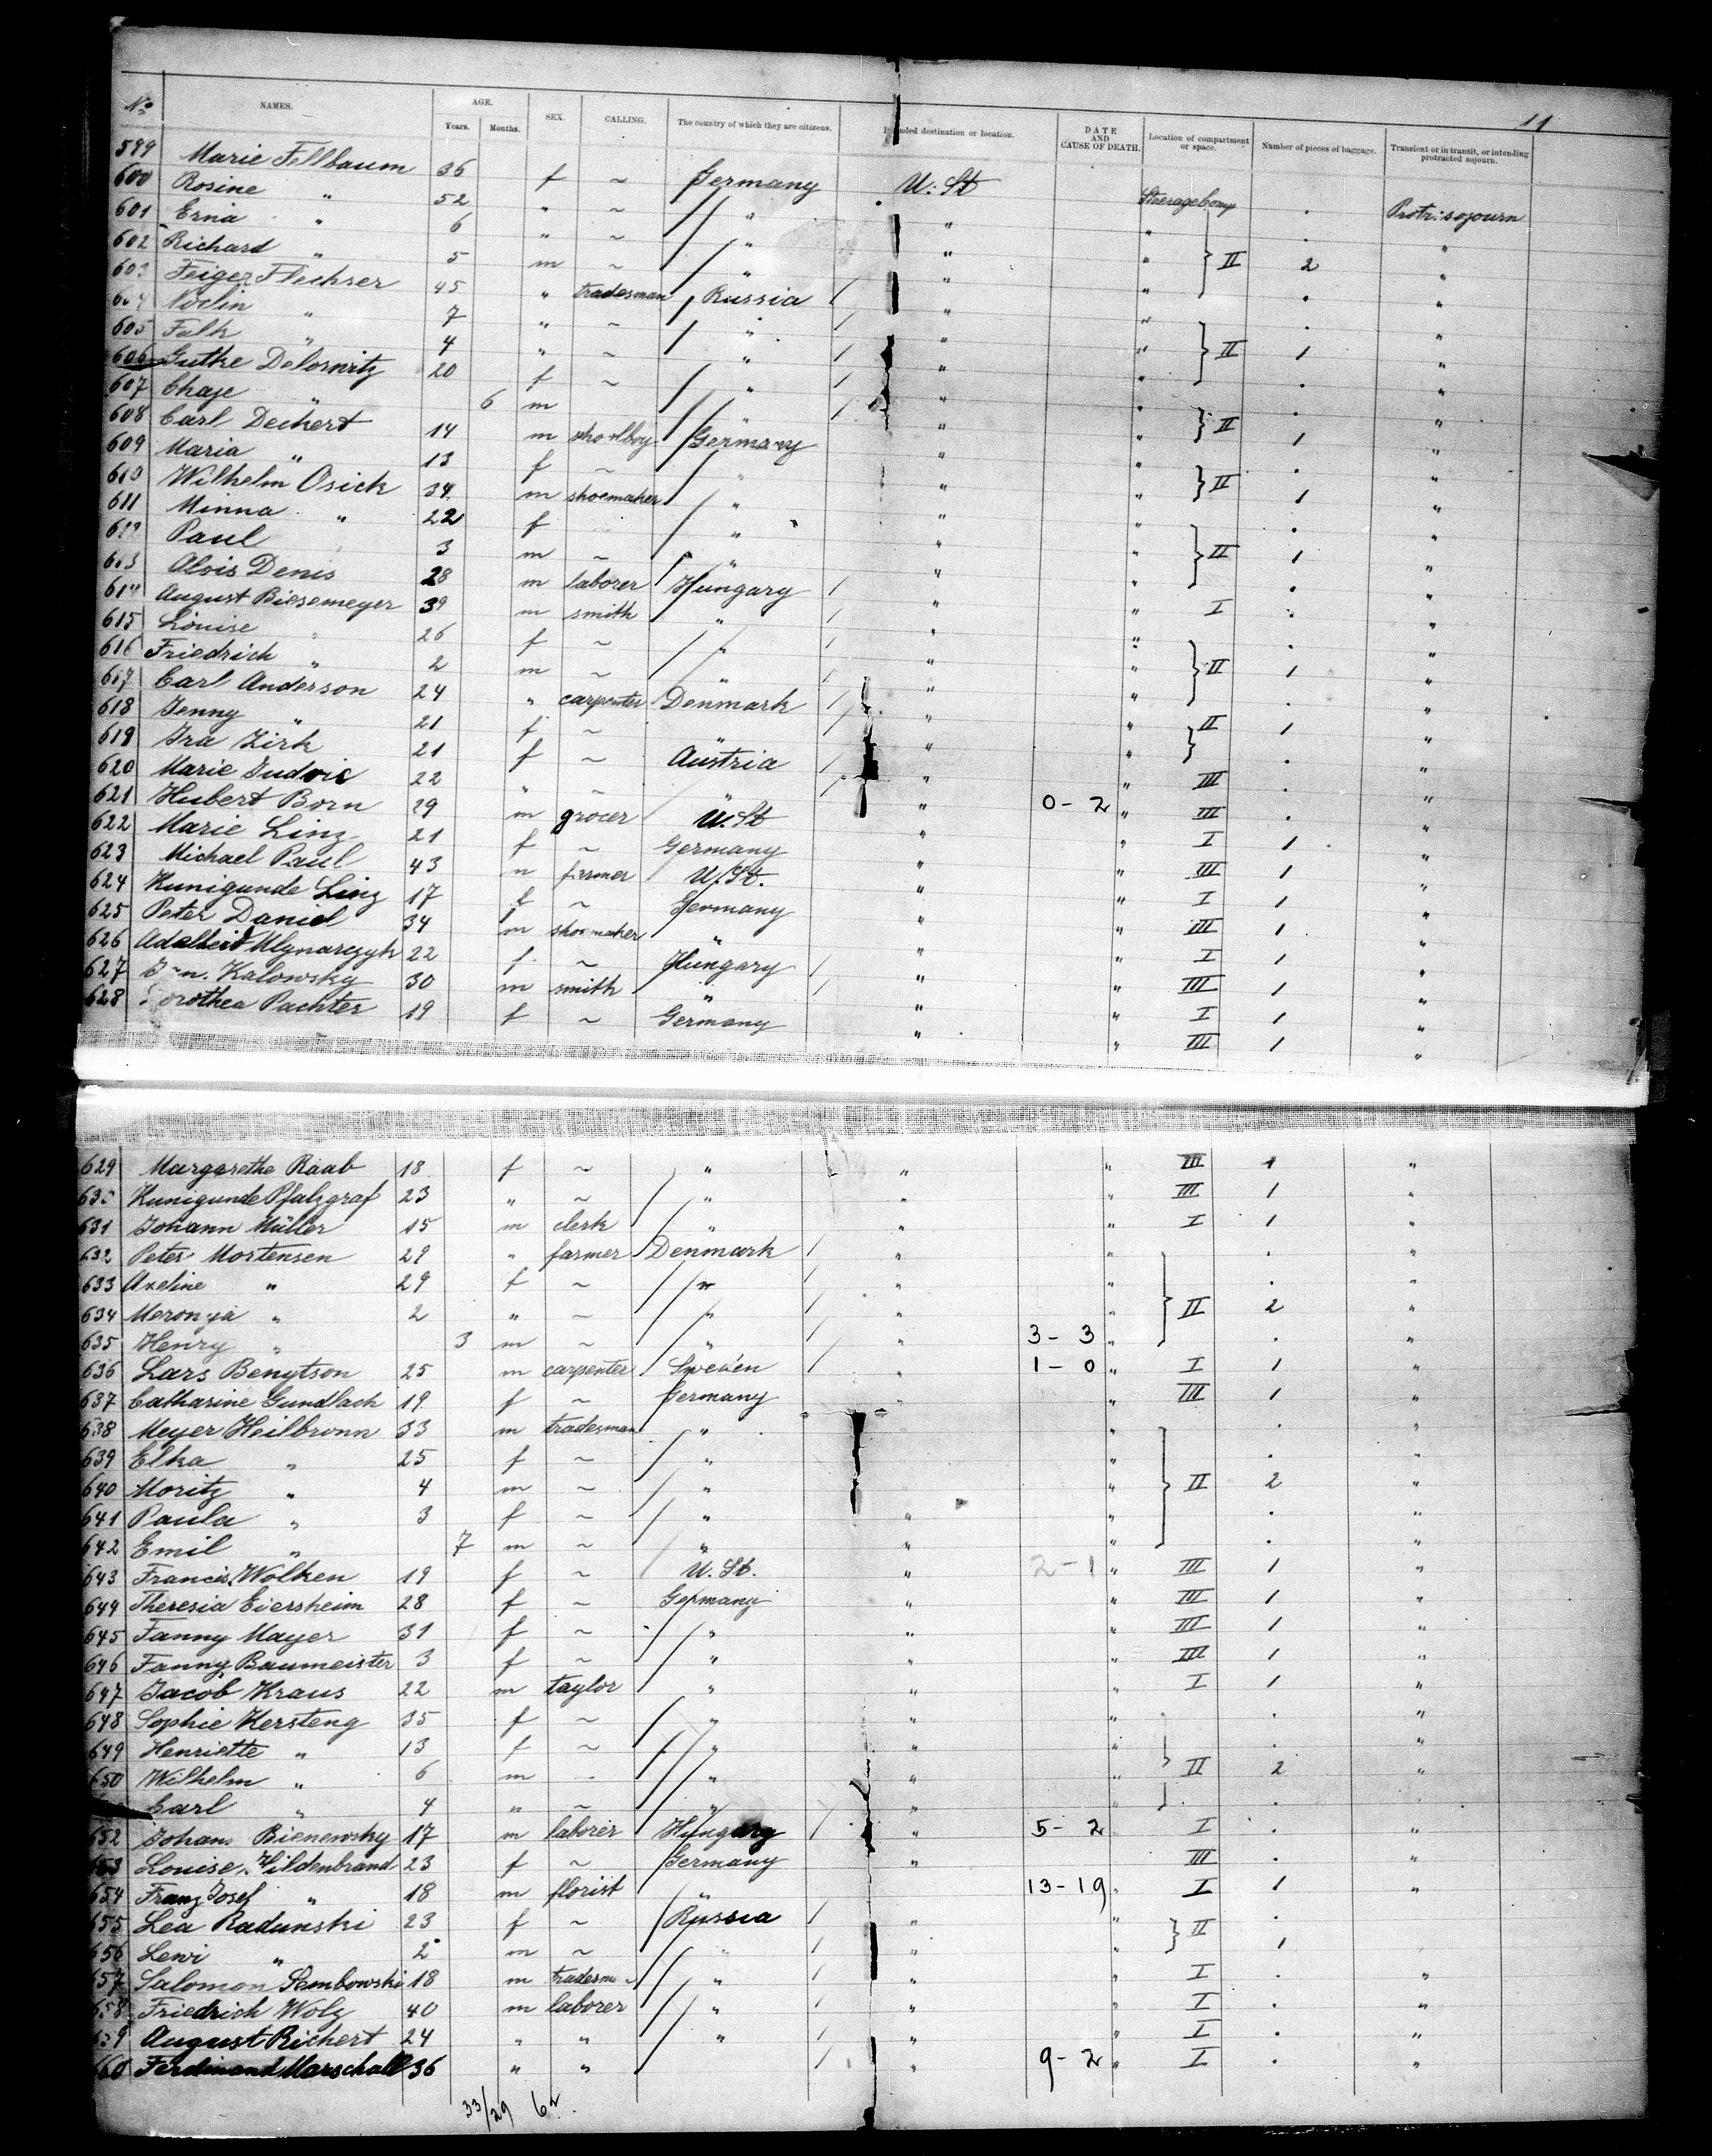 11
No. NAMES. AGE. Years. Months. SEX. CALLING. The country of which they are citizens. Intended destination or location. DATE AND CAUSE OF DEATH. Location of compartment or space. Number of pieces of baggage. Transient or in transit, or intending protracted sojourn.
599 Marie Fellbaum 36 f ~ Germany U. St Steeragecomp . Protr: sojourn
600 Rosine " 52 " ~ " " " . "
601 Erna " 6 " ~ " " " } II 2 "
602 Richard " 5 m ~ " " " . "
603 Feiger Flechser 45 " tradesman Russia / " " . "
604 " 7 " ~ " / " " } II 1 "
605 Falk " 4 " ~ " / " " . "
606 Gutke 20 f ~ " / " " } II . "
607 Chaje " 6 m " / " " 1 "
608 Carl Deckert 14 m shoolboy Germany " " } II . "
609 Maria " 13 f ~ " " " 1 "
610 Wilhelm Osick 34 m shoemaker " " " . "
611 Minna " 22 f " " " } II 1 "
612 Paul 3 m ~ " " " . "
613 Alois Denis 28 m laborer Hungary / " " I . "
614 August Biesemeyer 39 m smith " / " " . "
615 Louise " 26 f ~ " / " " } II 1 "
616 Friedrich " 2 m ~ " / " " . "
617 Carl Anderson 24 " carpenter Denmark / " " } II 1 "
618 Jenny " 21 f ~ " / " " . "
619 Ira Zirk 21 f ~ Austria / " " III . "
620 Marie Iudvic 22 " ~ " / " " III . "
621 Hubert Born 29 m grocer U. St " 0-2 " I 1 "
622 Marie Linz 21 f ~ Germany " " III 1 "
623 Michael Paul 43 m farmer U. St. " " I 1 "
624 Kunigunde Linz 17 f ~ Germany " " III 1 "
625 Peter Daniel 34 m shoemaker " " " I 1 "
626 Adelheid Mlynarczyk 22 f ~ Hungary / " " III 1 "
627 Kalowsky 30 m smith " / " " I 1 "
628 Dorothea Pachter 19 f ~ Germany " " III 1 "
629 Margarethe Raab 18 f ~ " " " III 1 "
630 Kunigunde Pfalzgraf 23 " ~ " " " III 1 "
631 Johann Müller 15 m clerk " " " I 1 "
632 Peter Mortensen 29 " farmer Denmark / " " . "
633 Axeline " 29 f ~ " / " " . "
634 " 2 " ~ " / " " } II 2 "
635 Henry " 3 m ~ " / " 3-3 " . "
636 Lars Bengtson 25 m carpenter Sweden / " 1-0 " I 1 "
637 Catharine Gundlach 19 f ~ Germany " " III 1 "
638 Meyer Heilbronn 33 m tradesman " " . "
639 Elka " 25 f ~ " " . "
640 Moritz " 4 m ~ " " } II 2 "
641 Paula " 3 f ~ " " " . "
642 Emil " 7 m ~ " " " . "
643 Francis Wolken 19 f ~ U. St. " 2-1 " III 1 "
644 Theresia Eiersheim 28 f ~ Germany " " III 1 "
645 Fanny Mayer 31 f ~ " " " III 1 "
646 Fanny Baumeister 3 f ~ " " " III 1 "
647 Jacob Kraus 22 m taylor " " " I 1 "
648 Sophie Kersteng 35 f ~ " " " . "
649 Henriette " 13 f ~ " " " . "
650 Wilhelm " 6 m - " " " } II 2 "
Carl " 4 " ~ " " " . "
652 Johann Bienewsky 17 m laborer Hungary / " 5-2 I . "
653 Louise Hildenbrand 23 f ~ Germany " III . "
654 Franz Josef " 18 m florist " 13-19 " I 1 "
655 Lea Radunski 23 f ~ Russia / " " } II .
656 Lewi " 2 m ~ " / " " 1
657 Salomon Sembowski 18 m tradesman " / " " I . "
658 Friedrich Wolz 40 m laborer " / " " I . "
659 August Richert 24 " " " / " " I . "
660 Ferdinand Marschall 36 " " / " 9-2 " I . "
33/29 62